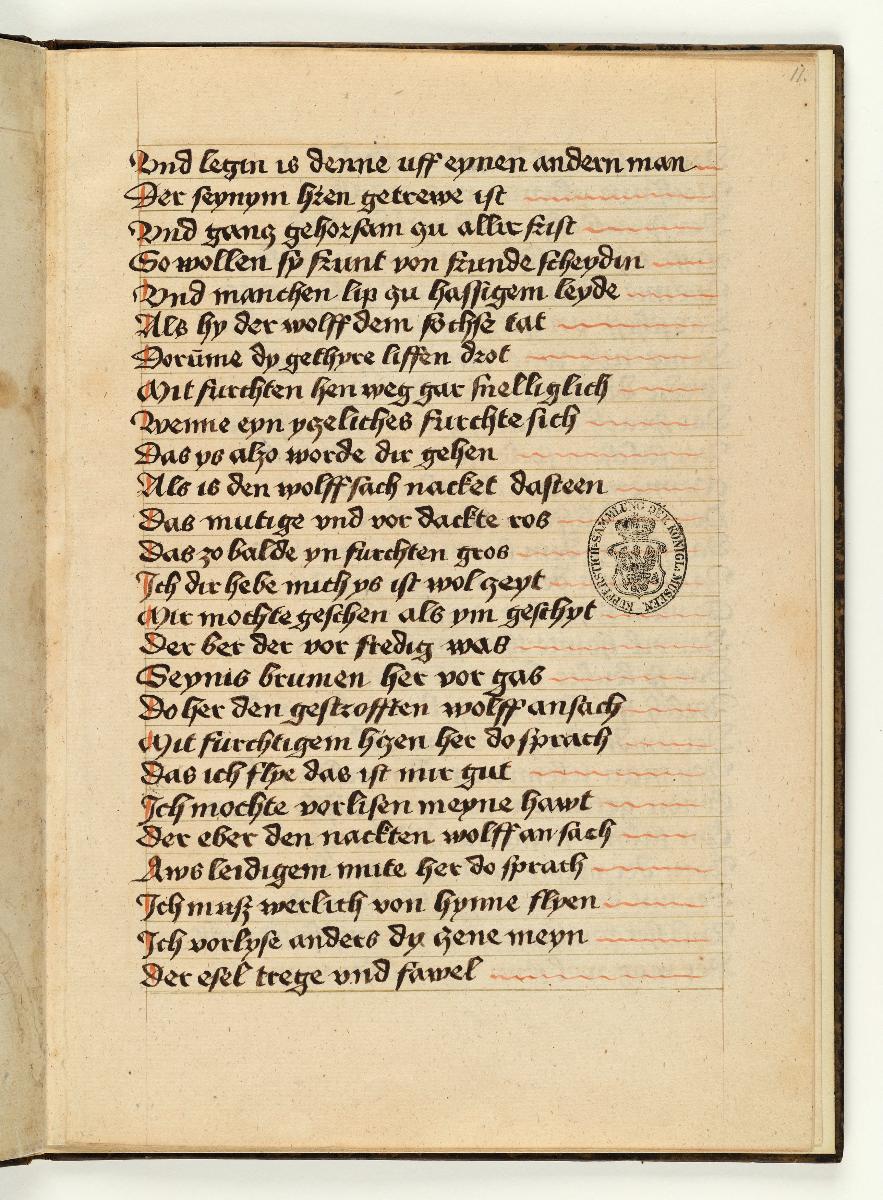 11.
Vnd legin is denne uff eynen andern man
Der seynym hren getrewe ist
Vnd gancz gehorsam czu allir frist
So wollen sy frunt von frunde scheydin
Vnd manchen lip czu hassigem leyde
Als hy der wolff dem fochse tat
Dorūme dy gethyre liffen drot
Mit furchten hen weg gar snelliglich
Wenne eyn yczeliches furchte sich
Das ys alzo worde dir gehen
Als is den wolff sach nacket dasteen
Das mutige vnd vor dackte ros
Das zo balde yn furchten gros
Ich dir hebe mich ys ist wol czeyt
Mir mochte geschen als ym geschyt
Der ber der vor stedig was
Seynis brumen her vor gas
Do her den gestrofften wolff ansach
Mit furchtigem hczen her do sprach
Das ich flye das ist mir gut
Ich mochte vorlisen meyne hawt
Der eber den nackten wolff an sach
Aws leidigem mute her do sprach
Ich musz werlich von hynne flyen
Ich vorlyse anders dy czene meyn
Der esel trege vnd fawel
KUPFERSTICH-SAMMLUNG DER KÖNIGL. MUSEEN